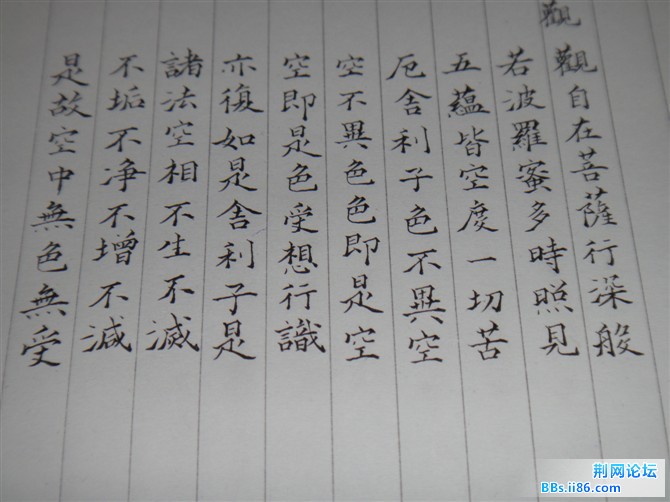 觀
觀自在菩薩行深般
若波羅蜜多時照見
五蘊皆空度一切苦
厄舍利子色不異空
空不異色色即是空
空即是色受想行識
亦復如是舍利子是
諸法空相不生不滅
不垢不净不增不減
是故空中無色無受
荆网论坛
BBs.ii86.com